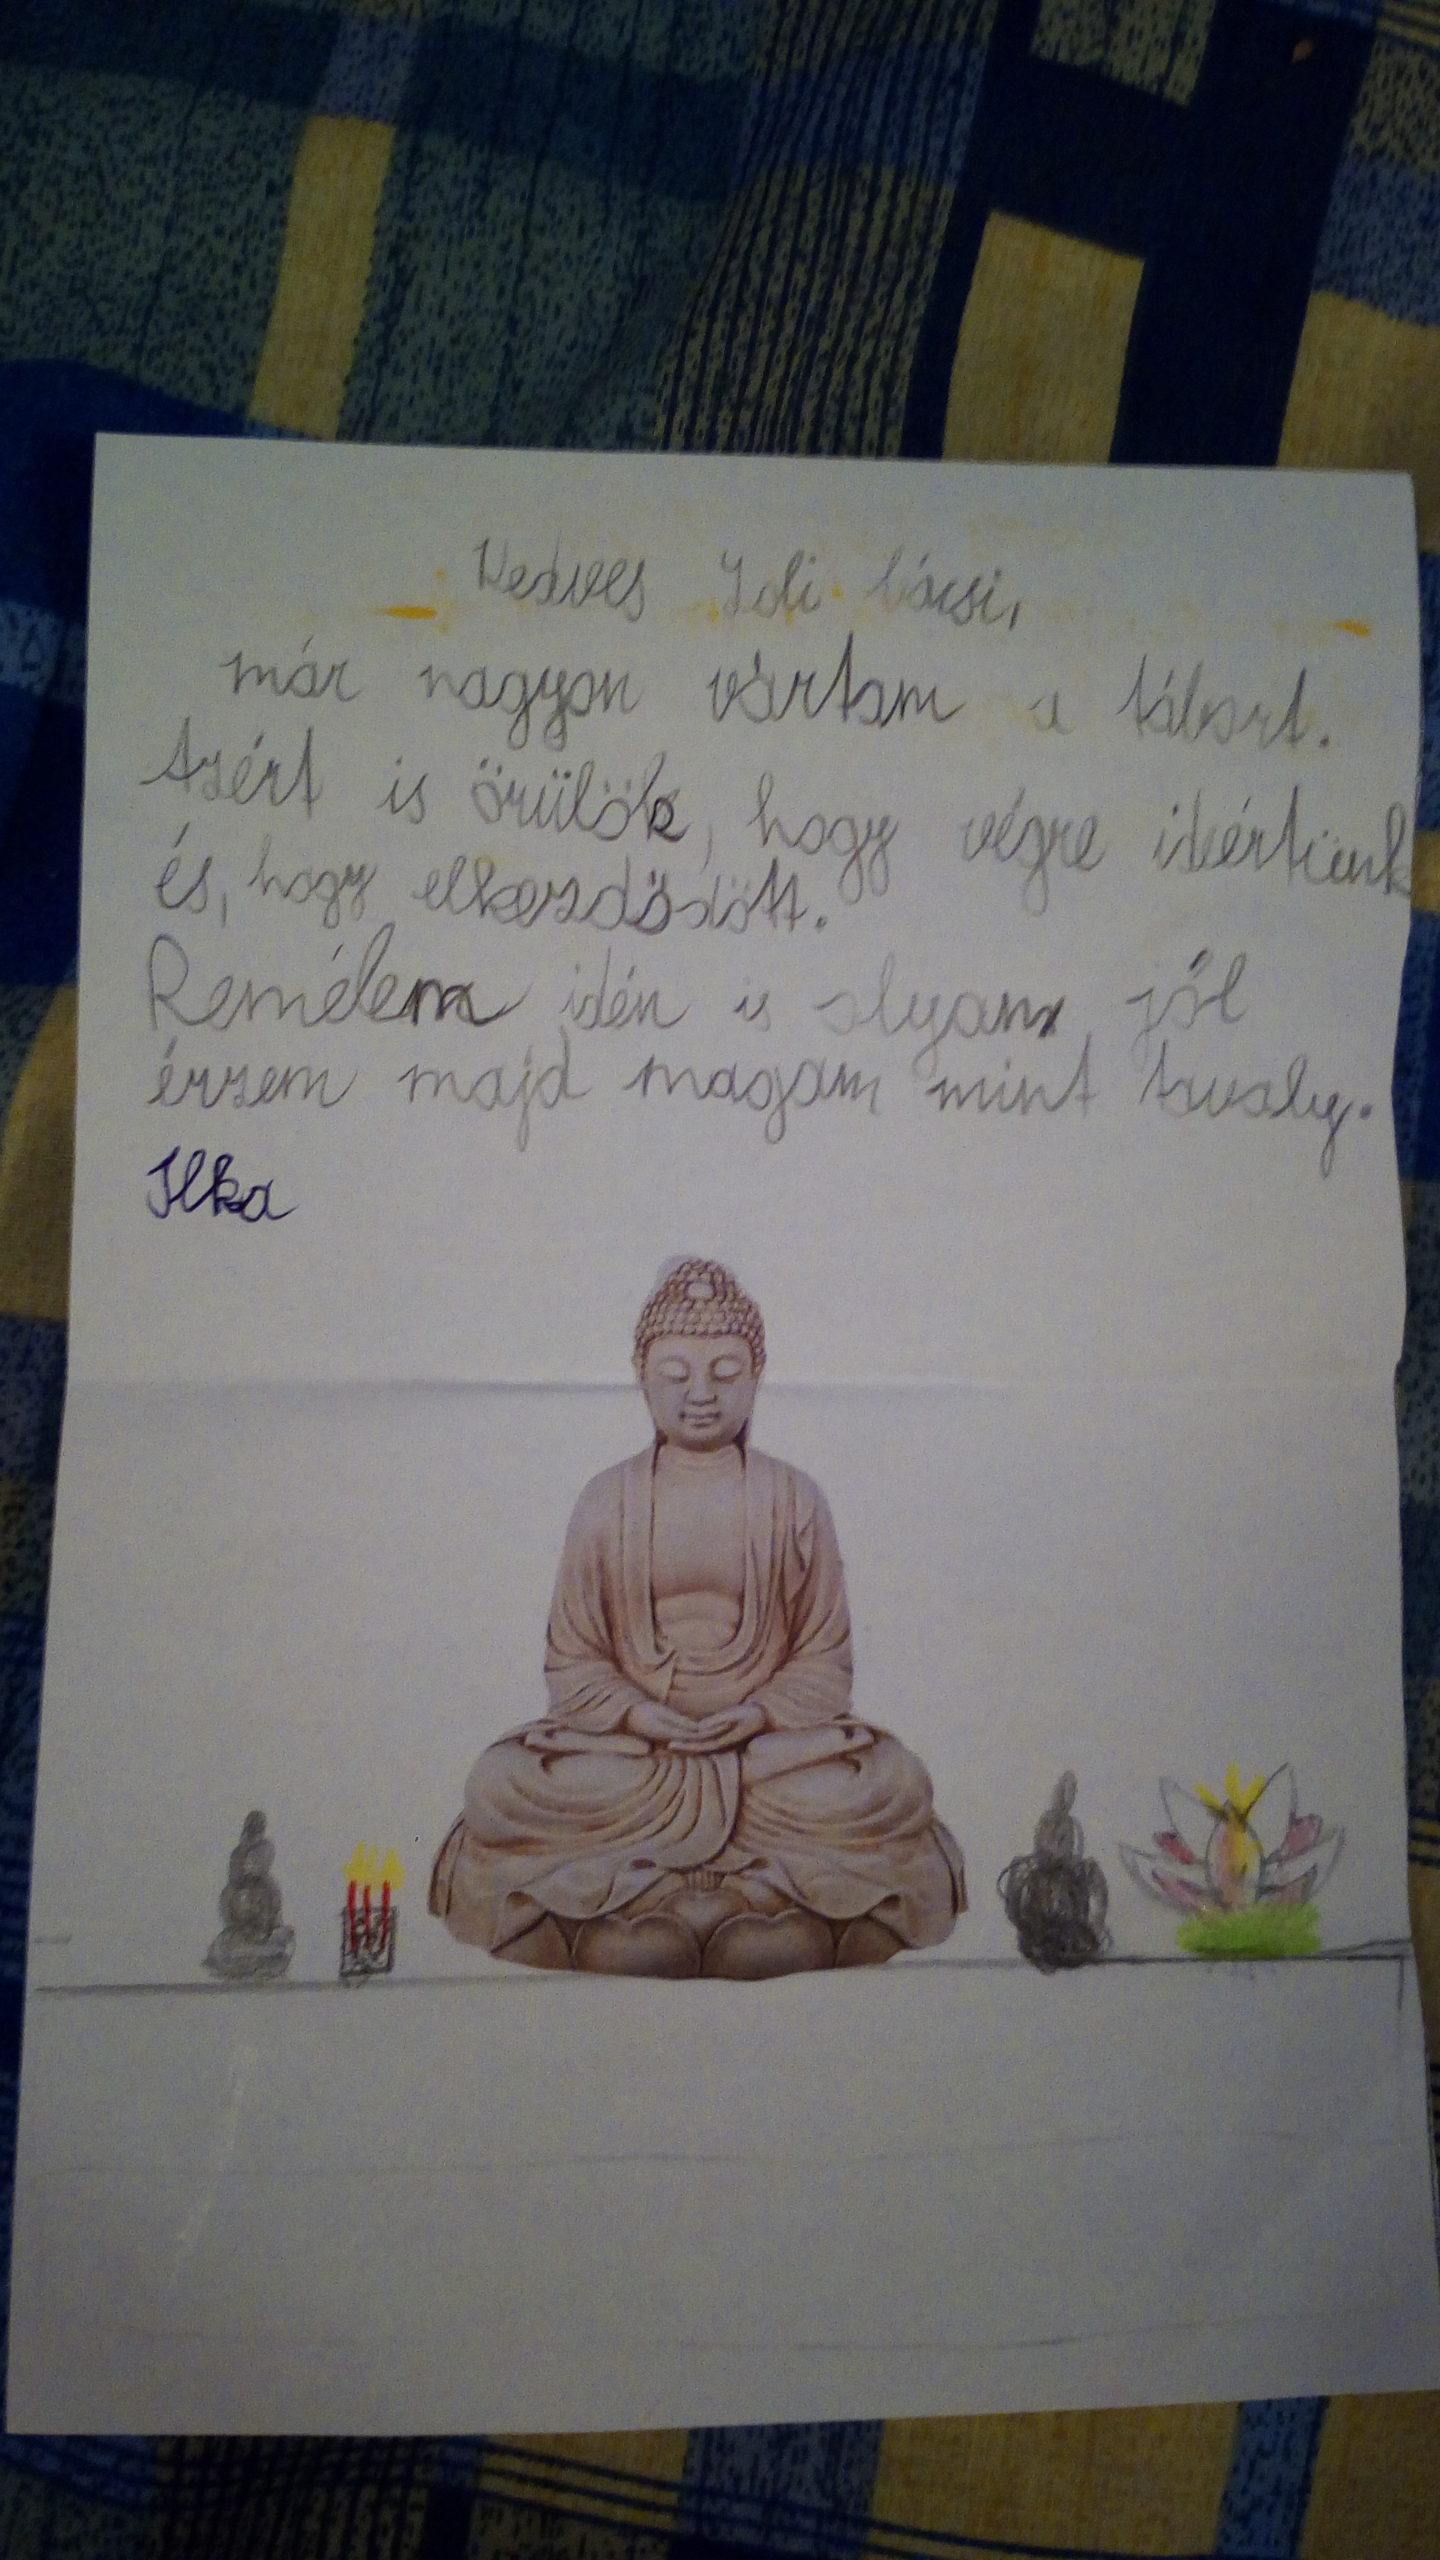 Kedves Joli bácsi,
már nagyon vártam a tábort.
Azért is örülök, hogy végre ideértünk
és, hogy elkezdődött.
Remélem idén is olyan jól
érzem majd magam mint tavaly.
Ilka